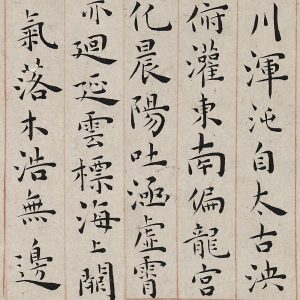 川渾沌自太古泱
俯灌東南偏龍宮
化晨陽吐涵虛霄
亦迴延雲標海上闊
氣落木浩無邊